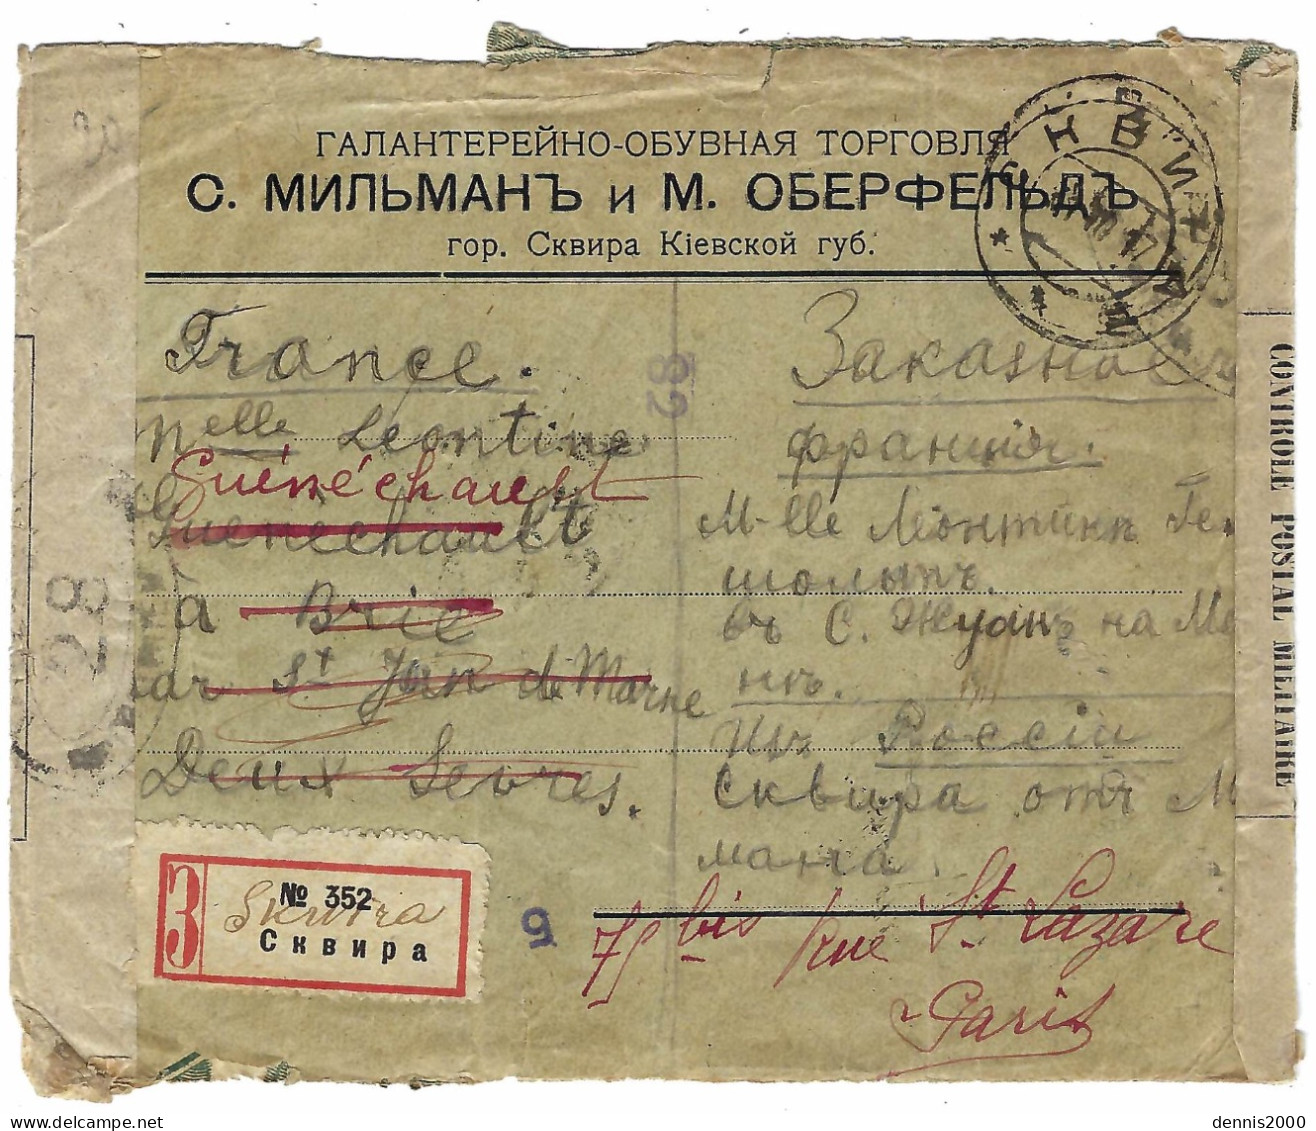 ГАЛАНТЕРЕЙНО-ОБУВНАЯ ТОРГОВЛЯ
С. МИЛЬМАНЪ и М. ОБЕРФЕЛЬДЪ
гор. Сквира Кіевской губ.
СКВИРА
30
France.
Melle Leontine
Guénéchault
Guenéchault
a Brie
par St Jean de Marne
Deux Sevres.
82
Заказное
Франція.
M-lle Леонтинъ Ге
шольтъ.
въ С. Жуанъ на Ма
нъ.
Изъ Россіи
Сквира отъ М
мана.
CONTROLE POSTAL MILITAIRE
28
З
№ 352
Skwira
Сквира
6
75 bis rue St Lazare
Paris
dennis2000